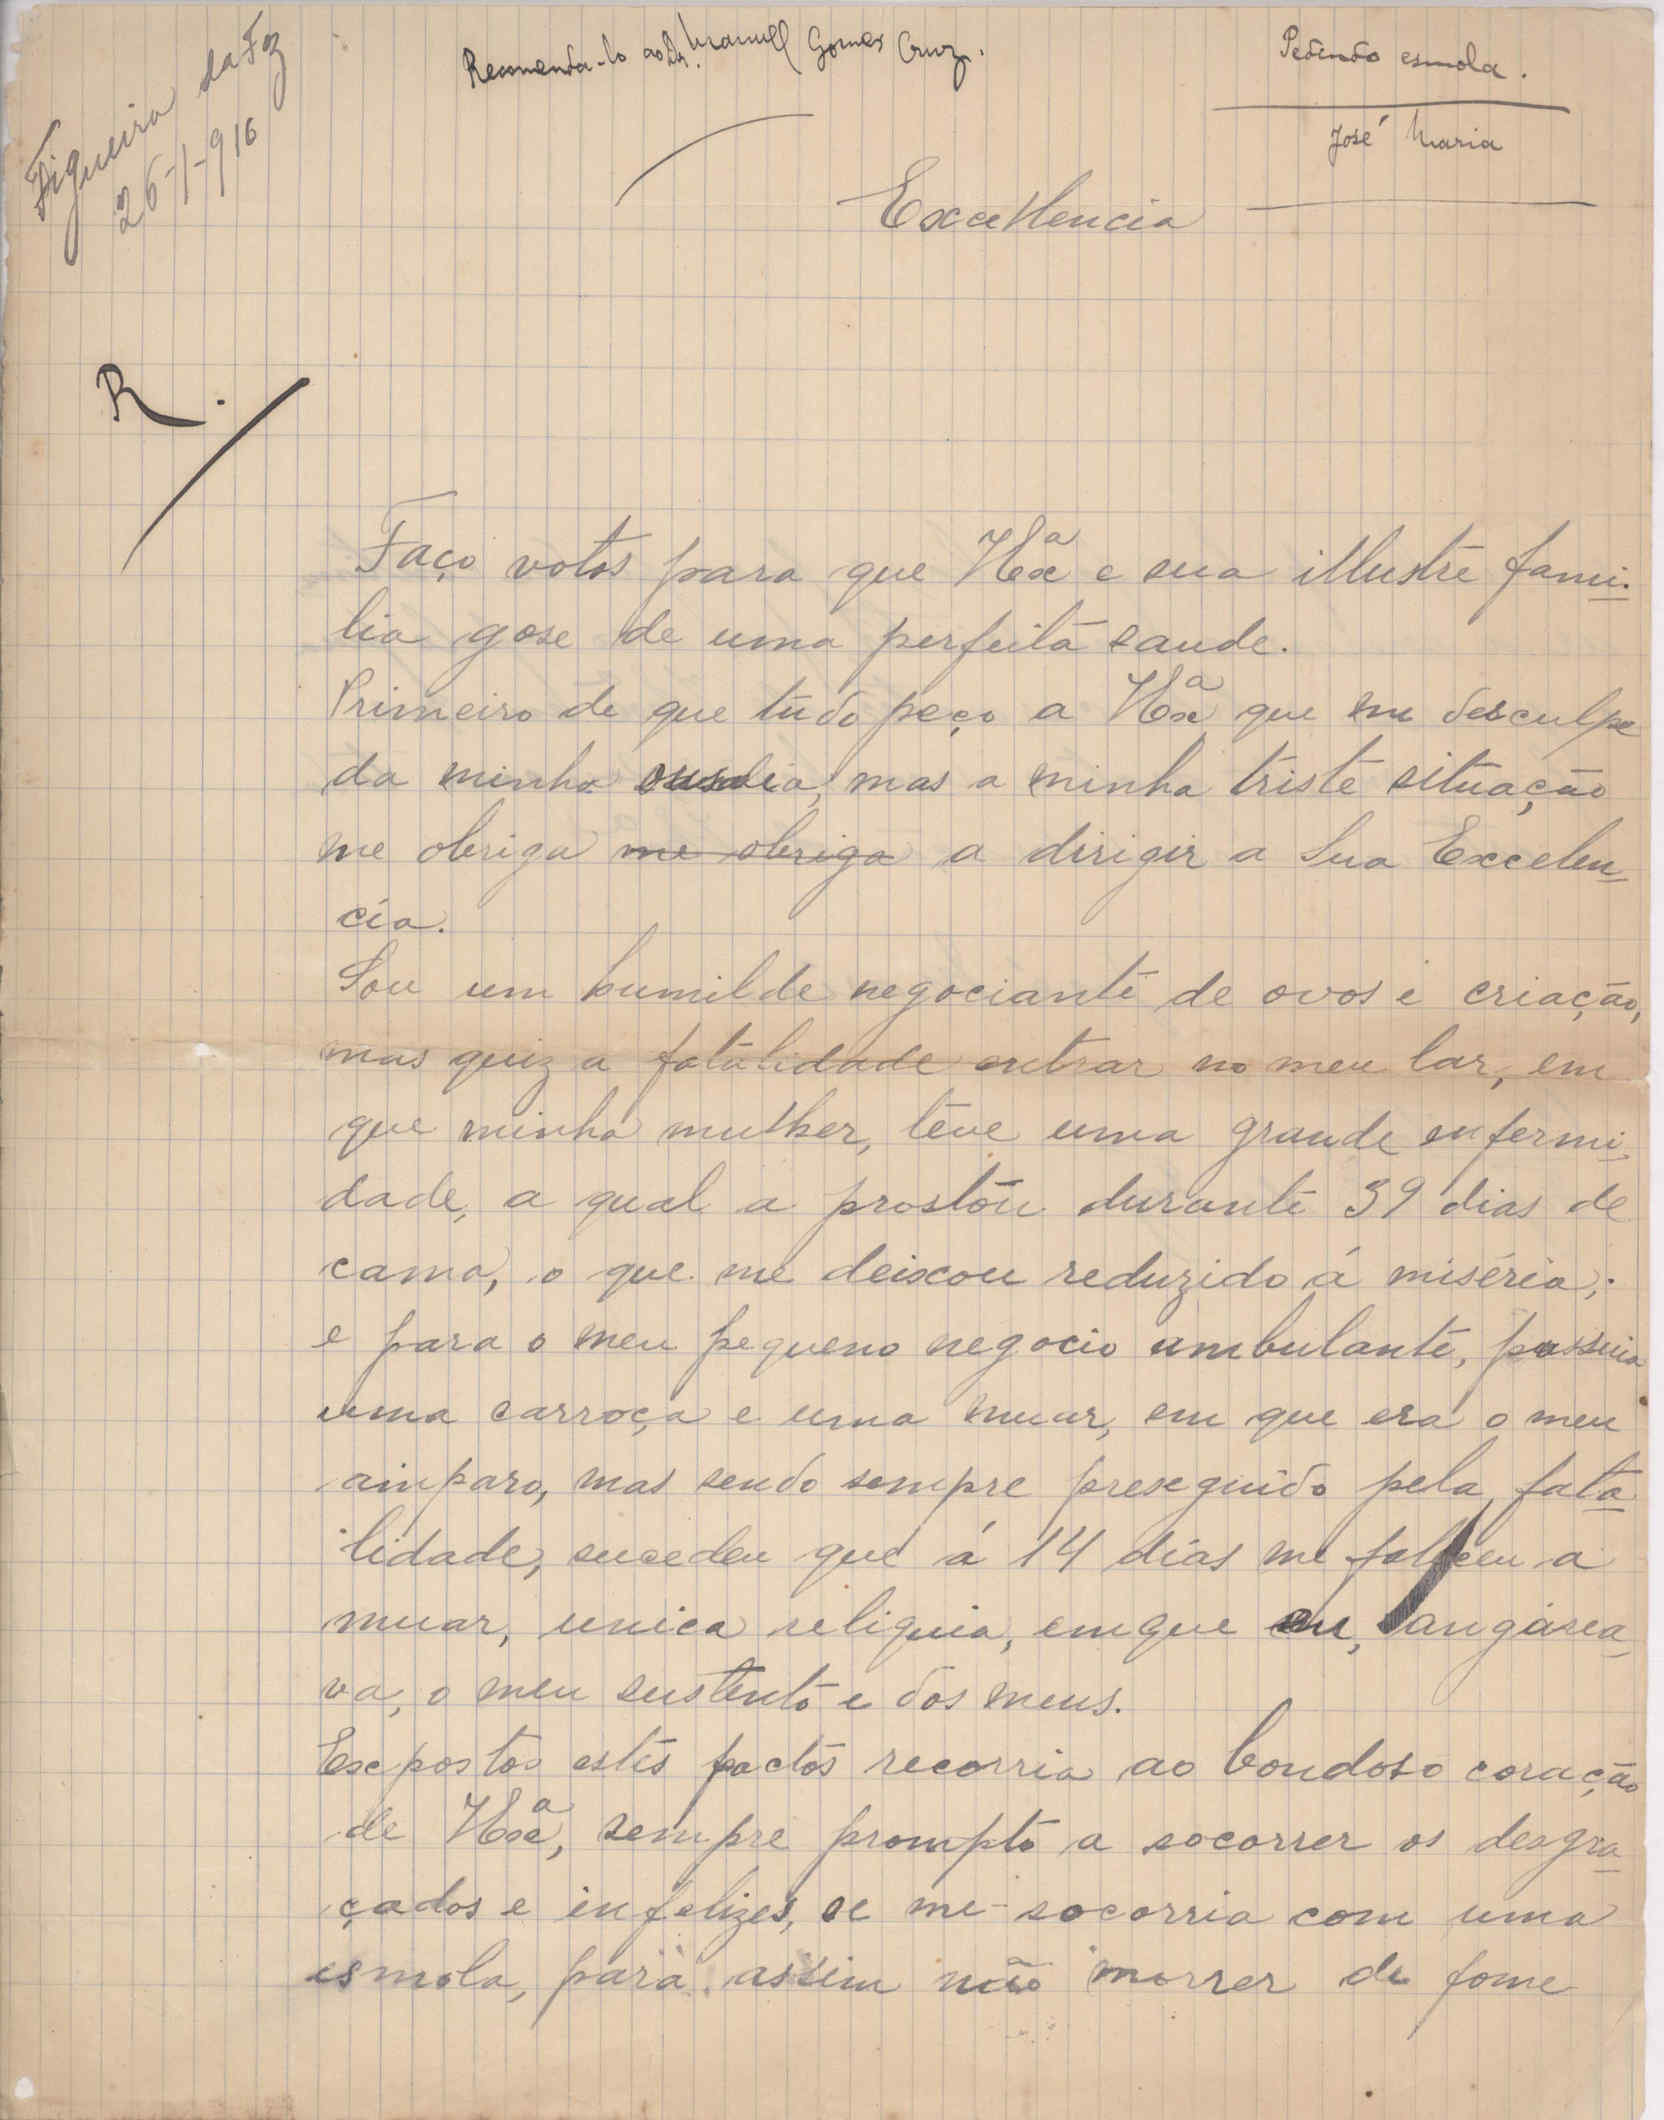 Figueira da Foz
26-1-916
Recomenda-lo ao Dr. Manuel Gomes Cruz.
Pedindo esmola.
José Maria
Excellencia
R.
Faço votos para que V Exª e sua illustre fami-
lia gose de uma perfeita saude.
Primeiro de que tudo peço a V Exª que me desculpe
da minha ousadia, mas a minha triste situação
me obriga me obriga a dirigir a Sua Excelen-
cia.
Sou um humilde negociante de ovos e criação,
mas quiz a fatalidade entrar no meu lar, em
que minha mulher, teve uma grande enfermi-
dade, a qual a prostou durante 39 dias de
cama, o que me deixou reduzido á miséria;
e para o meu pequeno negocio ambulante, possuia
uma carroça e uma muar, em que era o meu
amparo, mas sendo sempre preseguido pela fata-
lidade, sucedeu que á 14 dias me faleceu a
muar, unica reliquia, em que eu, angarea-
va, o meu sustento e dos meus.
Expostos estes factos recorria ao bondoso coração
de V Exª, sempre prompto a socorrer os desgra-
çados e infelizes, se me socorria com uma
esmola, para assim não morrer de fome